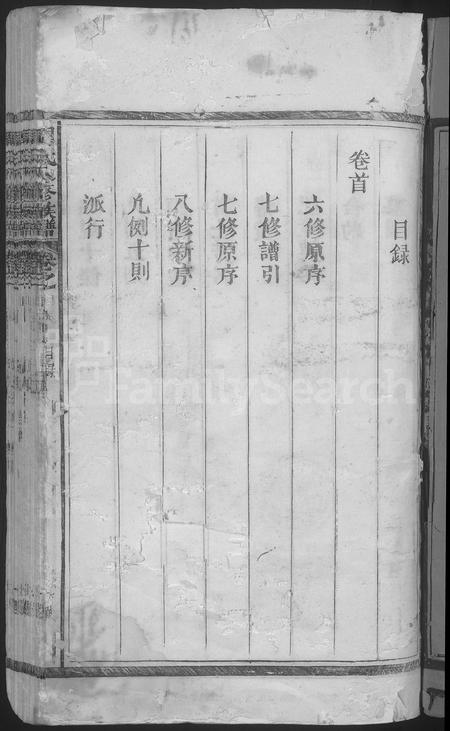 目録
卷首
六修原序
七修譜引
七修原序
八修新序
凡例十則
派行
FamilySearch